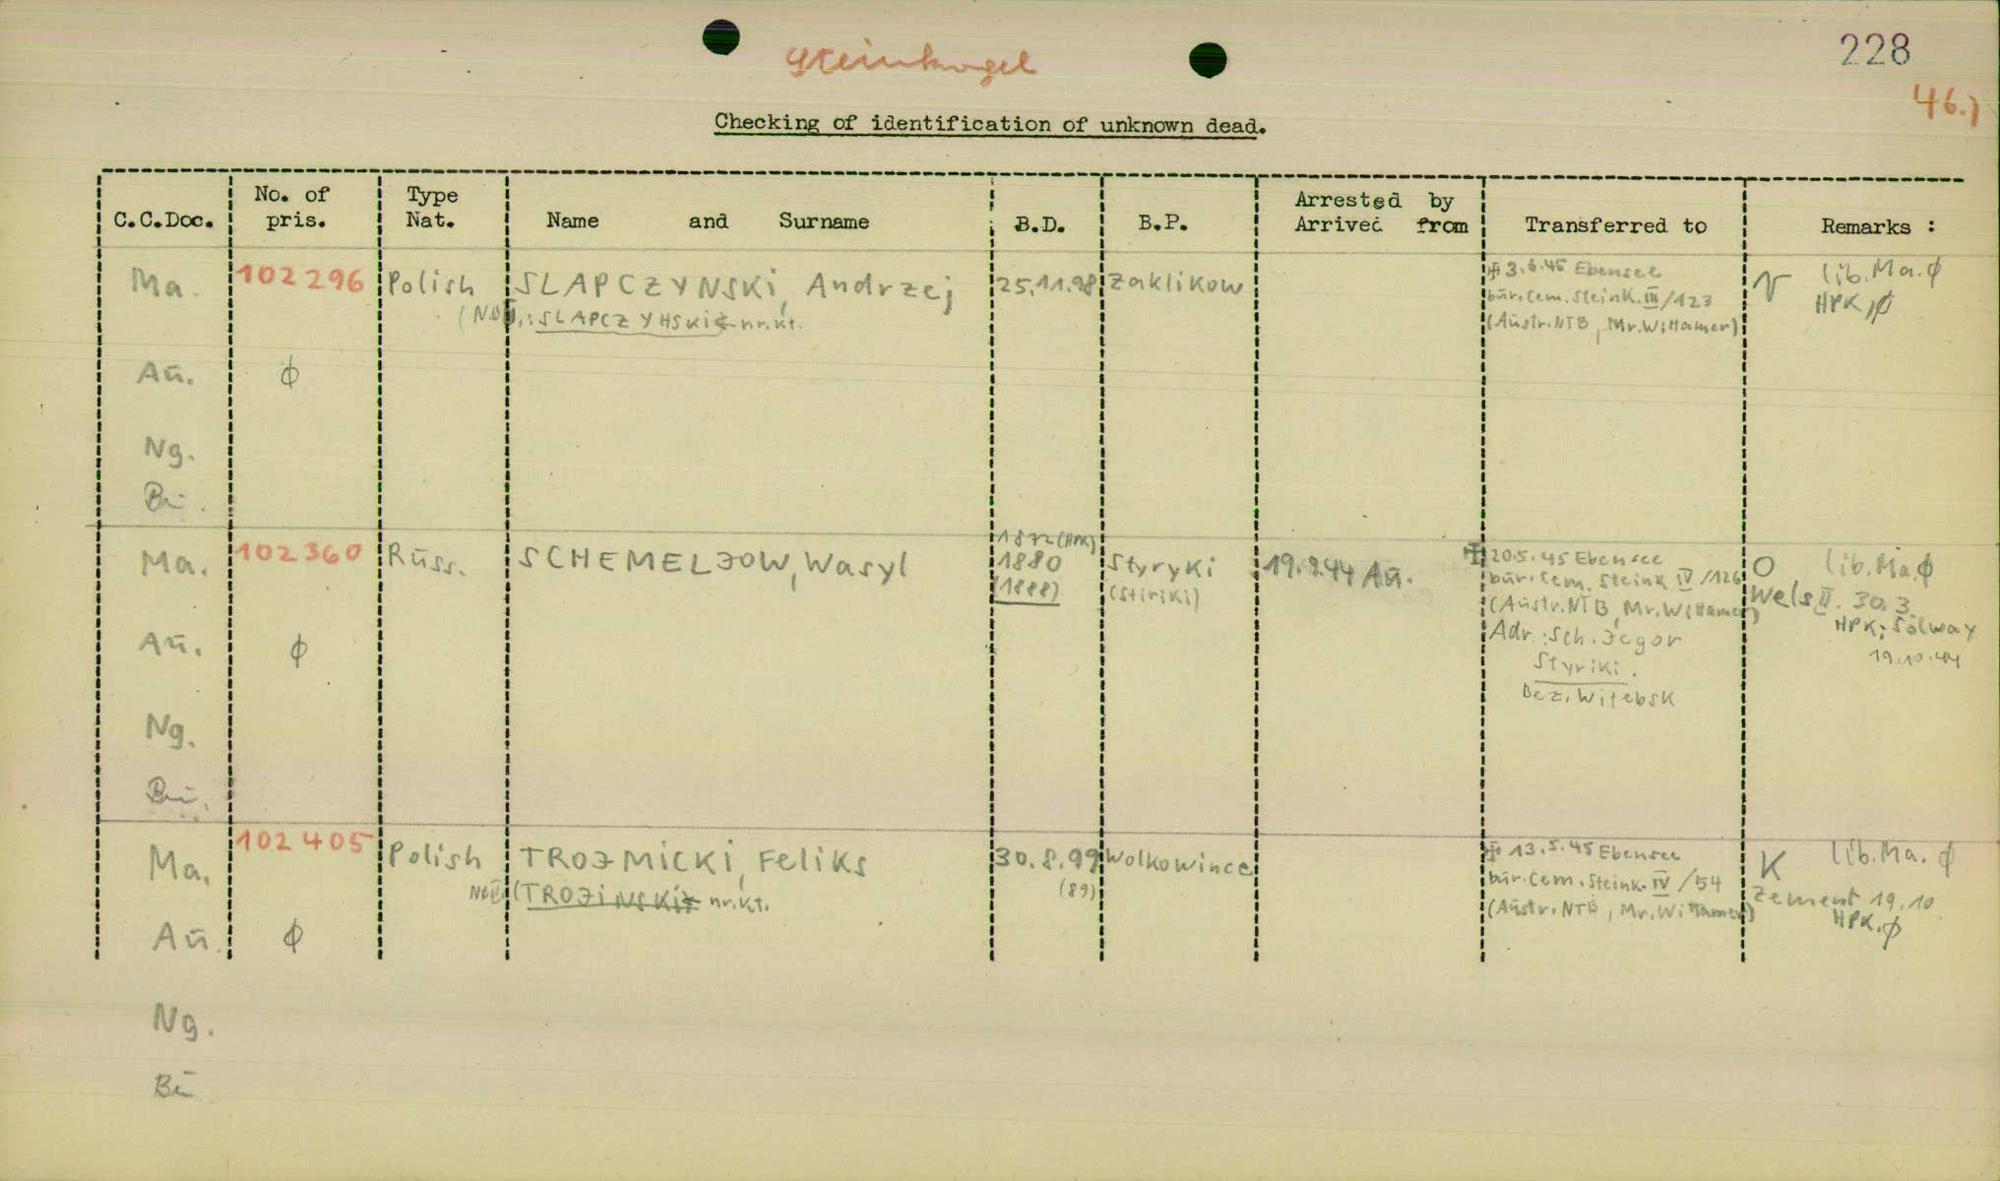 Steinkogel
228
46.)
Checking of identification of unknown dead.
C.C.Doc. No. of pris. Type Nat. Name and Surname B.D. B.P. Arrested by Arrived from Transferred to Remarks :
Ma. 102296 Polish SLAPCZYNSKi, Andrzej 25.11.98 Zaklikow
: SLAPCZYHSKi nr.kt.
✠ 3.6.45 Ebensee
bür.Cem.Steink.III/123
(Aüstr.NTB, Mr.Wittamer)
lib.Ma.ϕ
HPK,ϕ
Aü. ϕ
Ng.
Bü.
Ma. 102360 Rüss. SCHEMELJOW, Wasyl
1872(HPK)
1880
(1888)
Styryki
(Stiriki)
19.9.44 Aü.
✠ 20.5.45 Ebensee
bür.Cem. Steink IV/126
(Aüstr.NTB, Mr.Wittamer)
Adr.: Sch. Jegor
Styriki.
Bez. Witebsk
O lib.Ma.ϕ
Wels II. 30.3.
HPK; Solway
19.10.44
Aü. ϕ
Ng.
Bü.
Ma. 102405 Polish TROJMiCKi, Feliks 30.8.99 Wolkowince
(TROJiNSKi nr.kt.
(89)
✠ 13.5.45 Ebensee
bür.Cem.Steink.IV/54
(Aüstr.NTB, Mr.Wittamer)
K lib.Ma.ϕ
Zement 19.10
HPK.ϕ
Aü. ϕ
Ng.
Bü